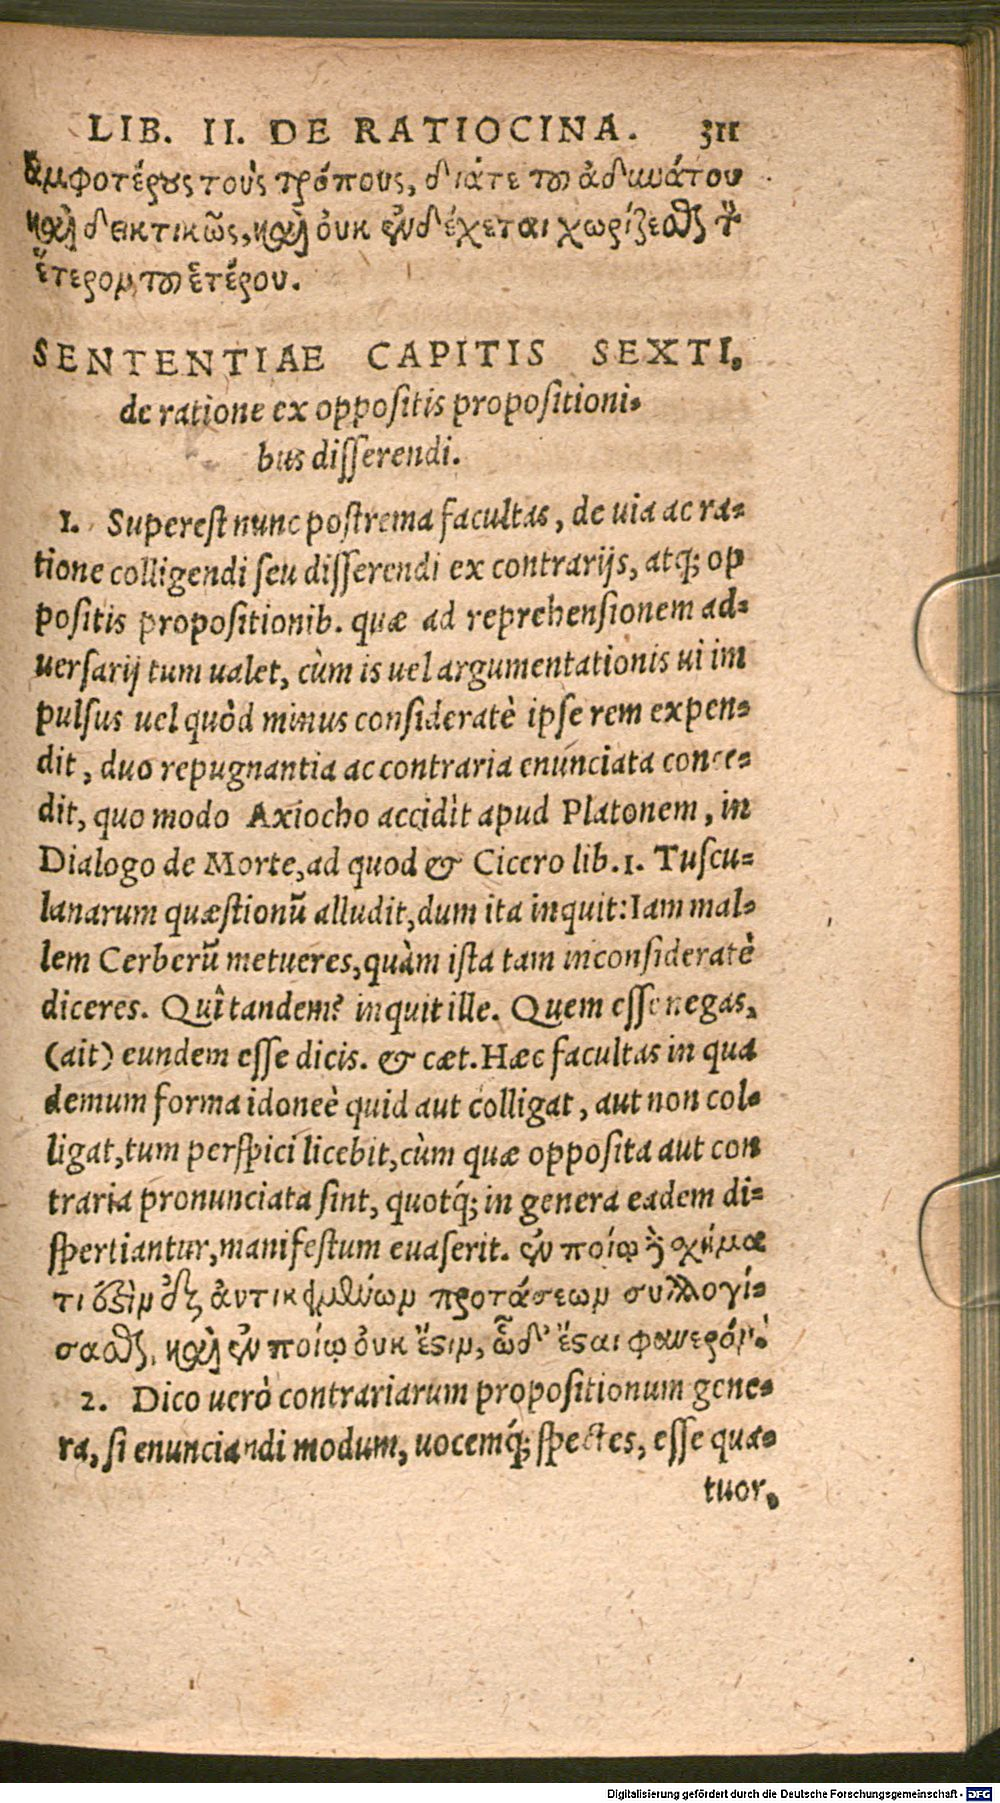 LIB. II. DE RATIOCINA. 311
ἀμφοτέρους τοὺς τρόπους, διάτε τοῦ ἀδυνάτου
καὶ δεικτικῶς, καὶ οὐκ ἐνδέχεται χωρίζεσθαι τὸν
ἕτερον τοῦ ἑτέρου.
SENTENTIAE CAPITIS SEXTI,
de ratione ex oppositis propositioni-
bus disserendi.
1. Superest nunc postrema facultas, de uia ac ra-
tione colligendi seu disserendi ex contrarijs, atq; op
positis propositionib. quæ ad reprehensionem ad-
uersarij tum ualet, cùm is uel argumentationis ui im
pulsus uel quòd minus consideratè ipse rem expen-
dit, duo repugnantia ac contraria enunciata conce-
dit, quo modo Axiocho accidit apud Platonem, in
Dialogo de Morte, ad quod & Cicero lib. 1. Tuscu-
lanarum quæstionū alludit, dum ita inquit: Iam mal-
lem Cerberū metueres, quàm ista tam inconsideratè
diceres. Quî tandem? inquit ille. Quem esse negas,
(ait) eundem esse dicis. & cæt. Hæc facultas in qua
demum forma idoneè quid aut colligat, aut non col-
ligat, tum perspici licebit, cùm quæ opposita aut con
traria pronunciata sint, quotq́; in genera eadem di-
spertiantur, manifestum euaserit. ἐν ποίῳ ἢ σχήμα
τι ἔστιν ἐξ ἀντικειμένων προτάσεων συλλογί-
σασθαι, καὶ ἐν ποίῳ οὐκ ἔστιν, ὧδ' ἔσται φανερόν.
2. Dico uerò contrariarum propositionum gene-
ra, si enunciandi modum, uocemq́; spectes, esse qua-
tuor,
Digitalisierung gefördert durch die Deutsche Forschungsgemeinschaft - DFG